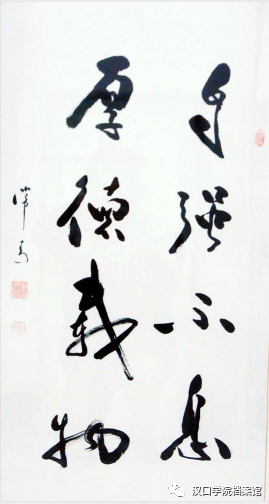 自强不息
厚德载物
汉口学院档案馆